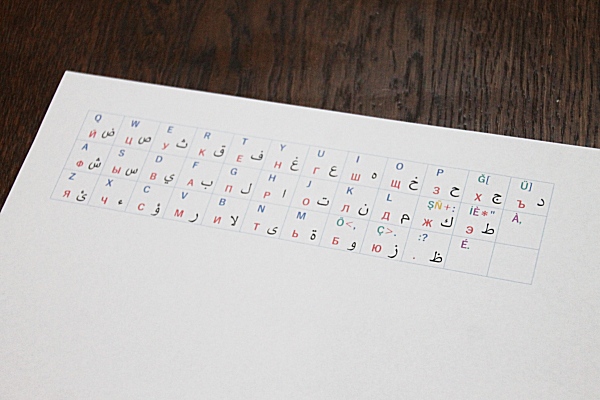 Q W E R T Y U I O P Ğ[ Ü]
Й ض Ц ص У ث К ق Е ف Н غ Г ع Ш ه Щ خ З ح Х ج Ъ د
A S D F G H J K L ŞÑ+; İÈ*" À,
Ф ش Ы س В ي А ب П ل Р ا О ت Л ن Д م Ж ك Э ط
Z X C V B N M Ö<, Ç>. :? É.
Я ئ Ч ء С ؤ М ر И لا Т ى Ь ة Б و Ю ز . ظ